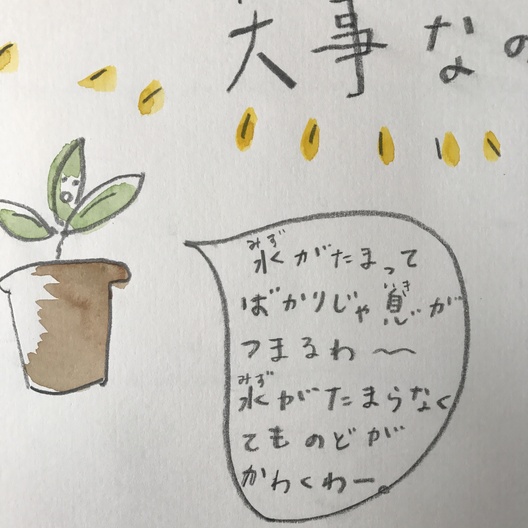 大事なの
水がたまって
ばかりじゃ息が
つまるわ〜
水がたまらなく
てものどが
かわくわー。